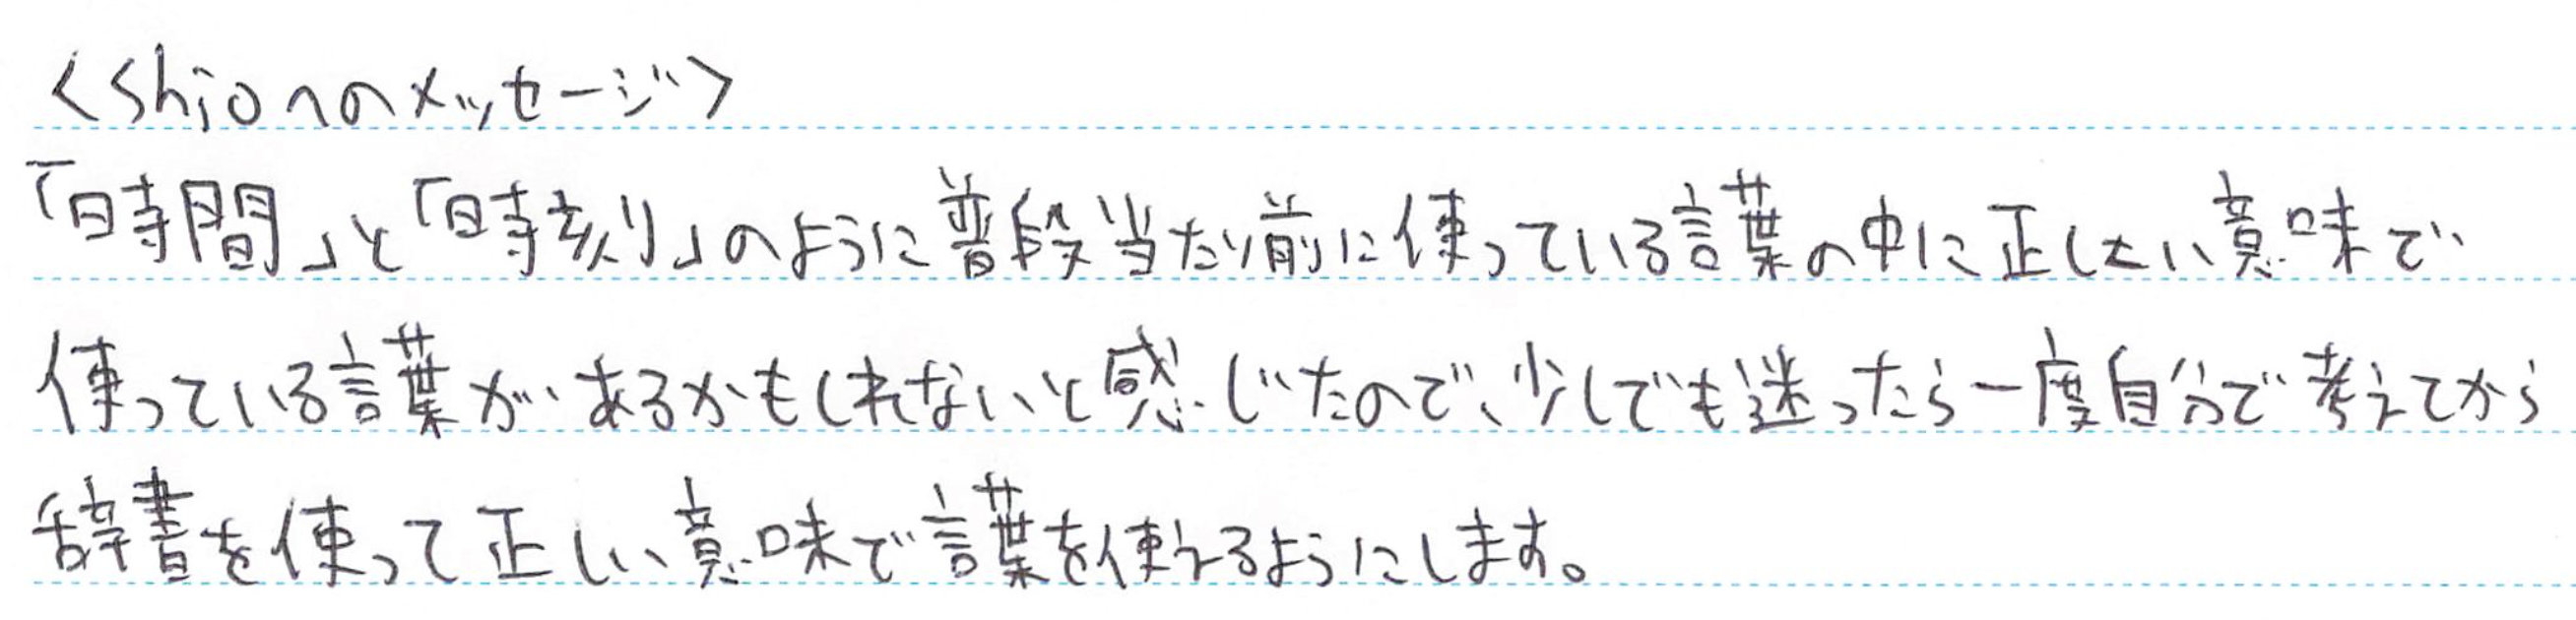 <Shioへのメッセージ>
「時間」と「時刻」のように普段当たり前に使っている言葉の中に正したい意味で
使っている言葉があるかもしれないと感じたので、少しでも迷ったら一度自分で考えてから
辞書を使って正しい意味で言葉を使えるようにします。